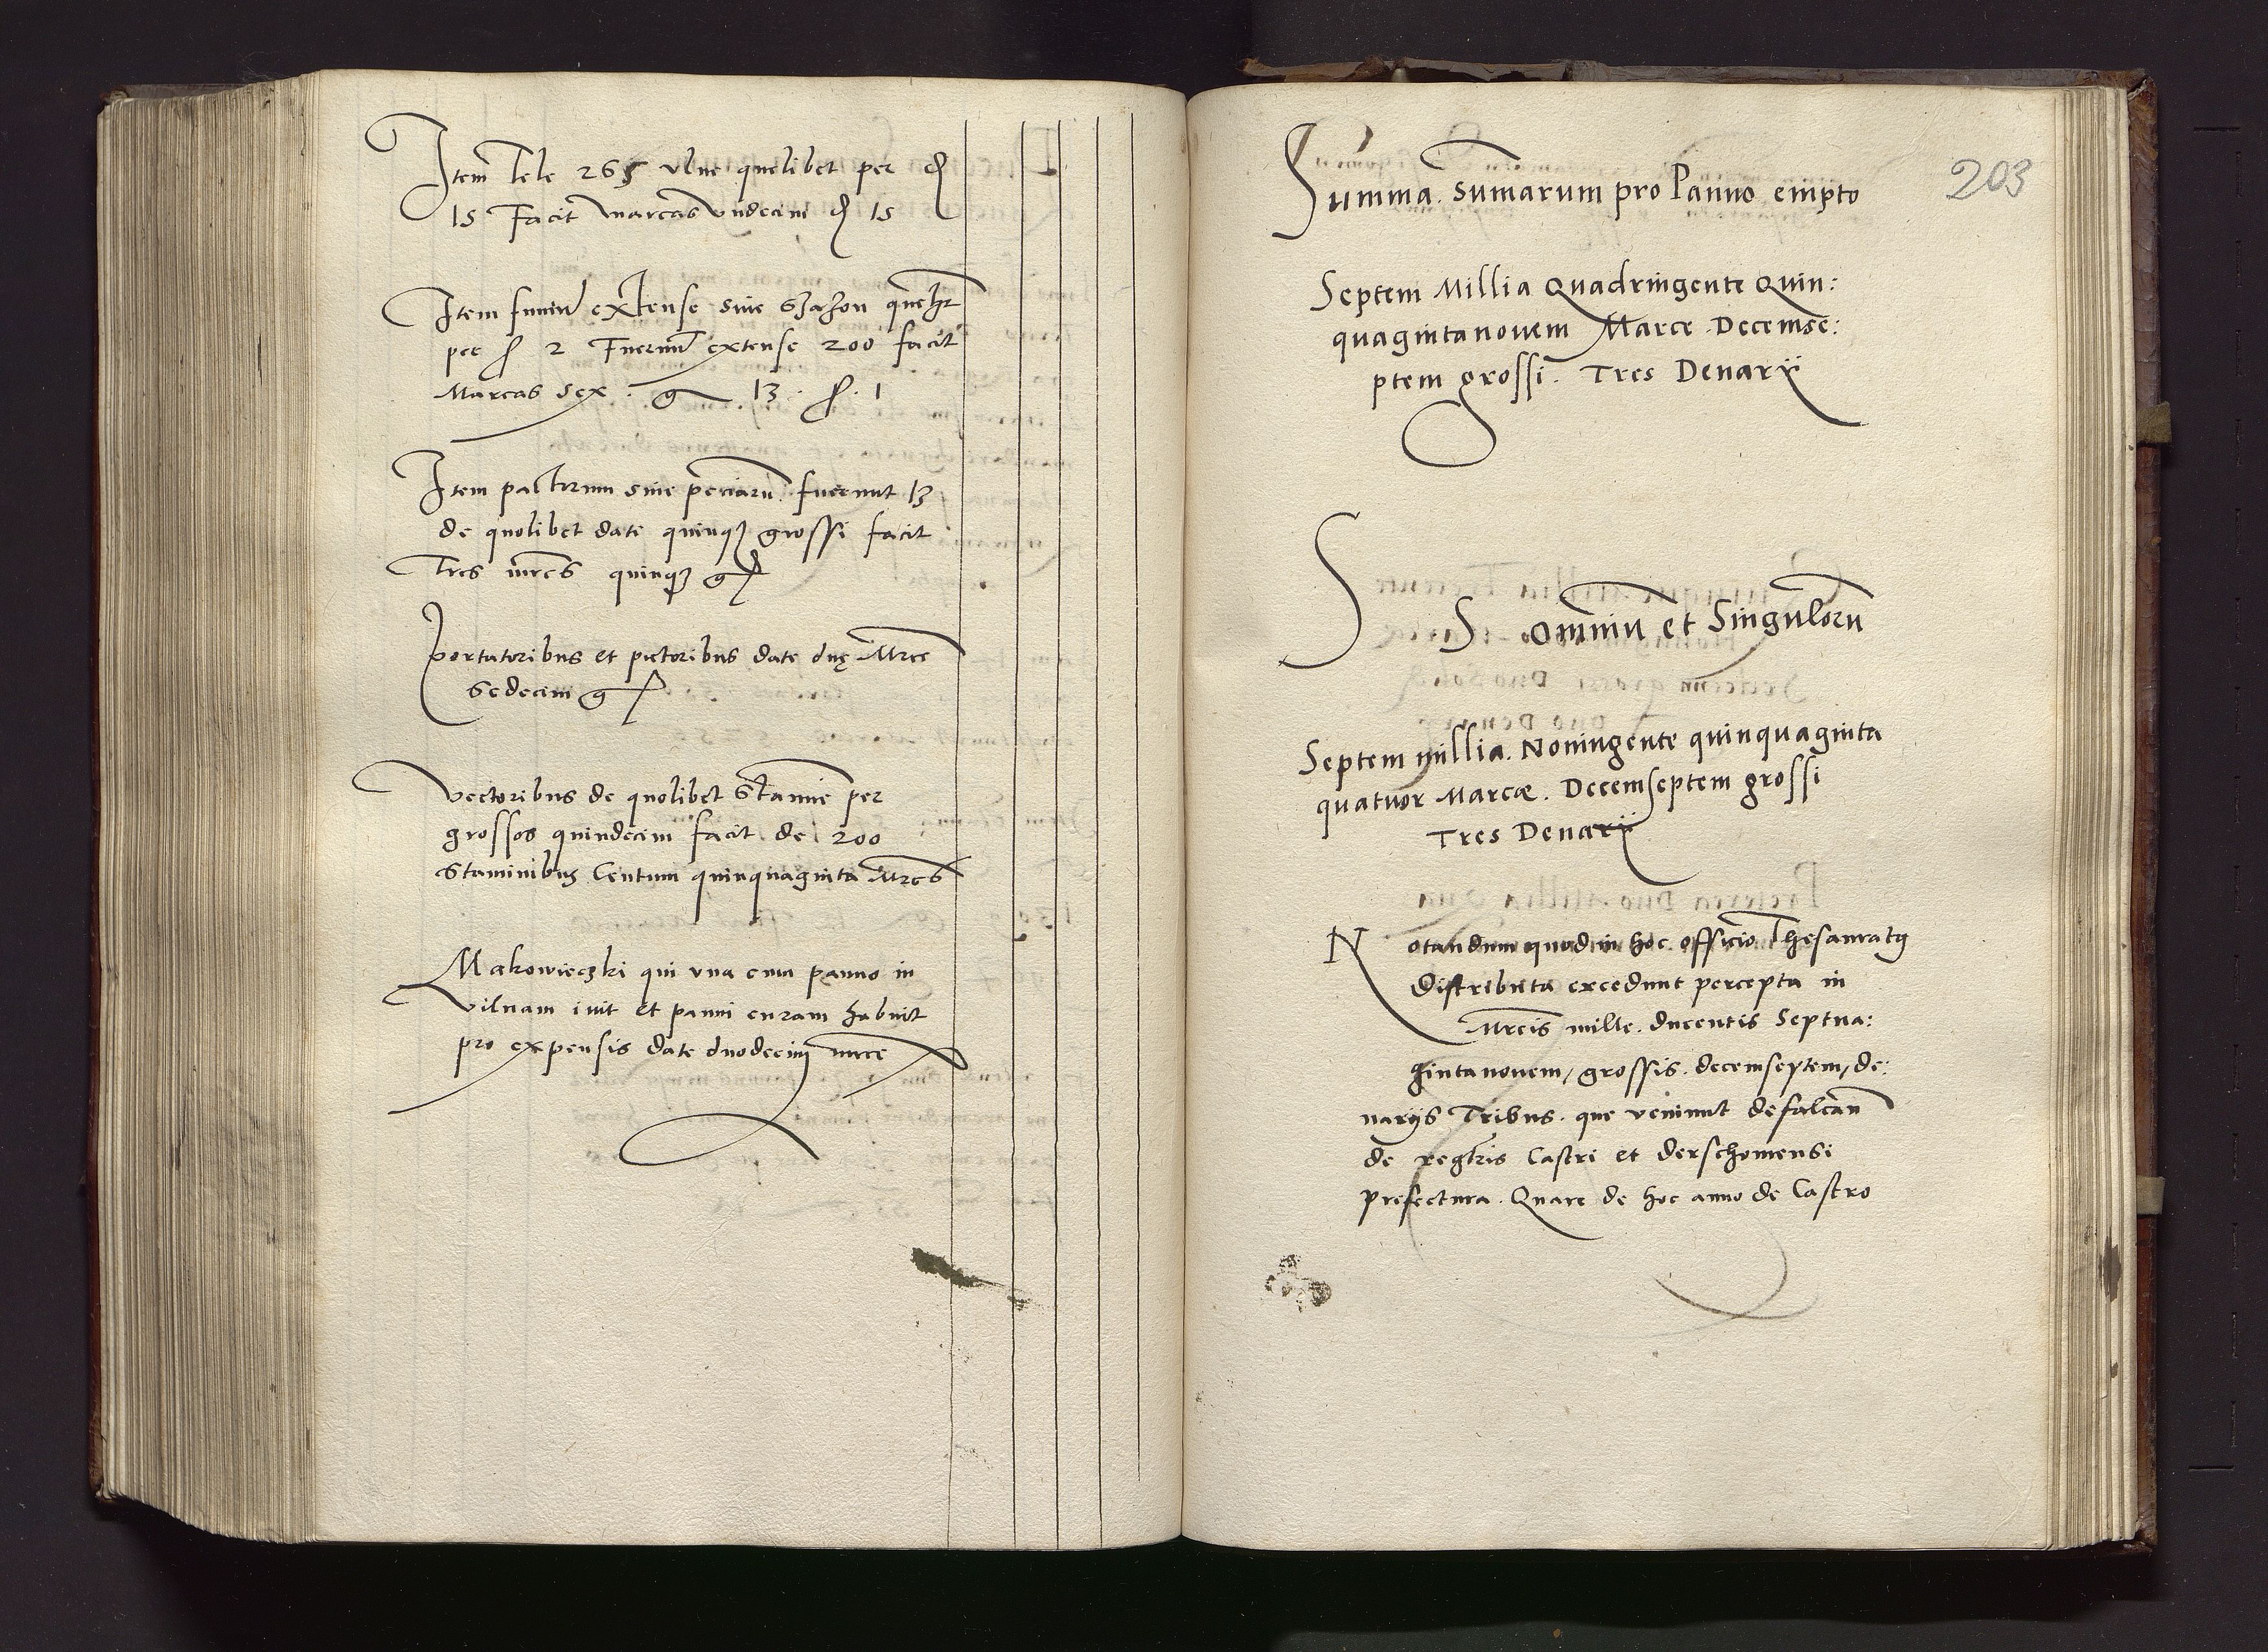 Item Tele 265 ulne quelibet per d
15 Facit marcas undecim d 15
Item funiu extense sive Szazon
per s 2 Fuerunt extense 200 facit
Marcas sex . g 13 . s . 1
Item pactorum sive peciaru fuerunt 13
de quolibet date quinq grossi facit
Tres mrcs quinq gr
portatoribus et pictoribus date duę Mrce
sedecim gr
Vectoribus de quolibet Stamine per
grossos quindecim facit de 200
Staminibus Centum quinquaginta Mrcs
Makowieczki qui una cum panno in
Vilnam ivit et panni curam habuit
pro expensis date duodecim mrce
203
Summa . Sumarum pro Panno empto
Septem Millia Quadringente Quin:
quagintanovem Marce Decemse:
ptem grossi . Tres Denarii
S Omniu et Singuloru
Septem millia . Noningente quinquaginta
quatuor Marcæ . Decemseptem grossi
Tres Denarii
Notandum quod in hoc officio Thesauratq
distributa excedunt percepta in
Mrcis mille . ducentis Septua:
gintanovem, grossis . decemseptem, de:
narijs Tribus . que veniunt defalcan
de regtris Castri et derschoviensi
prefectura . Quare de hoc anno de Castro